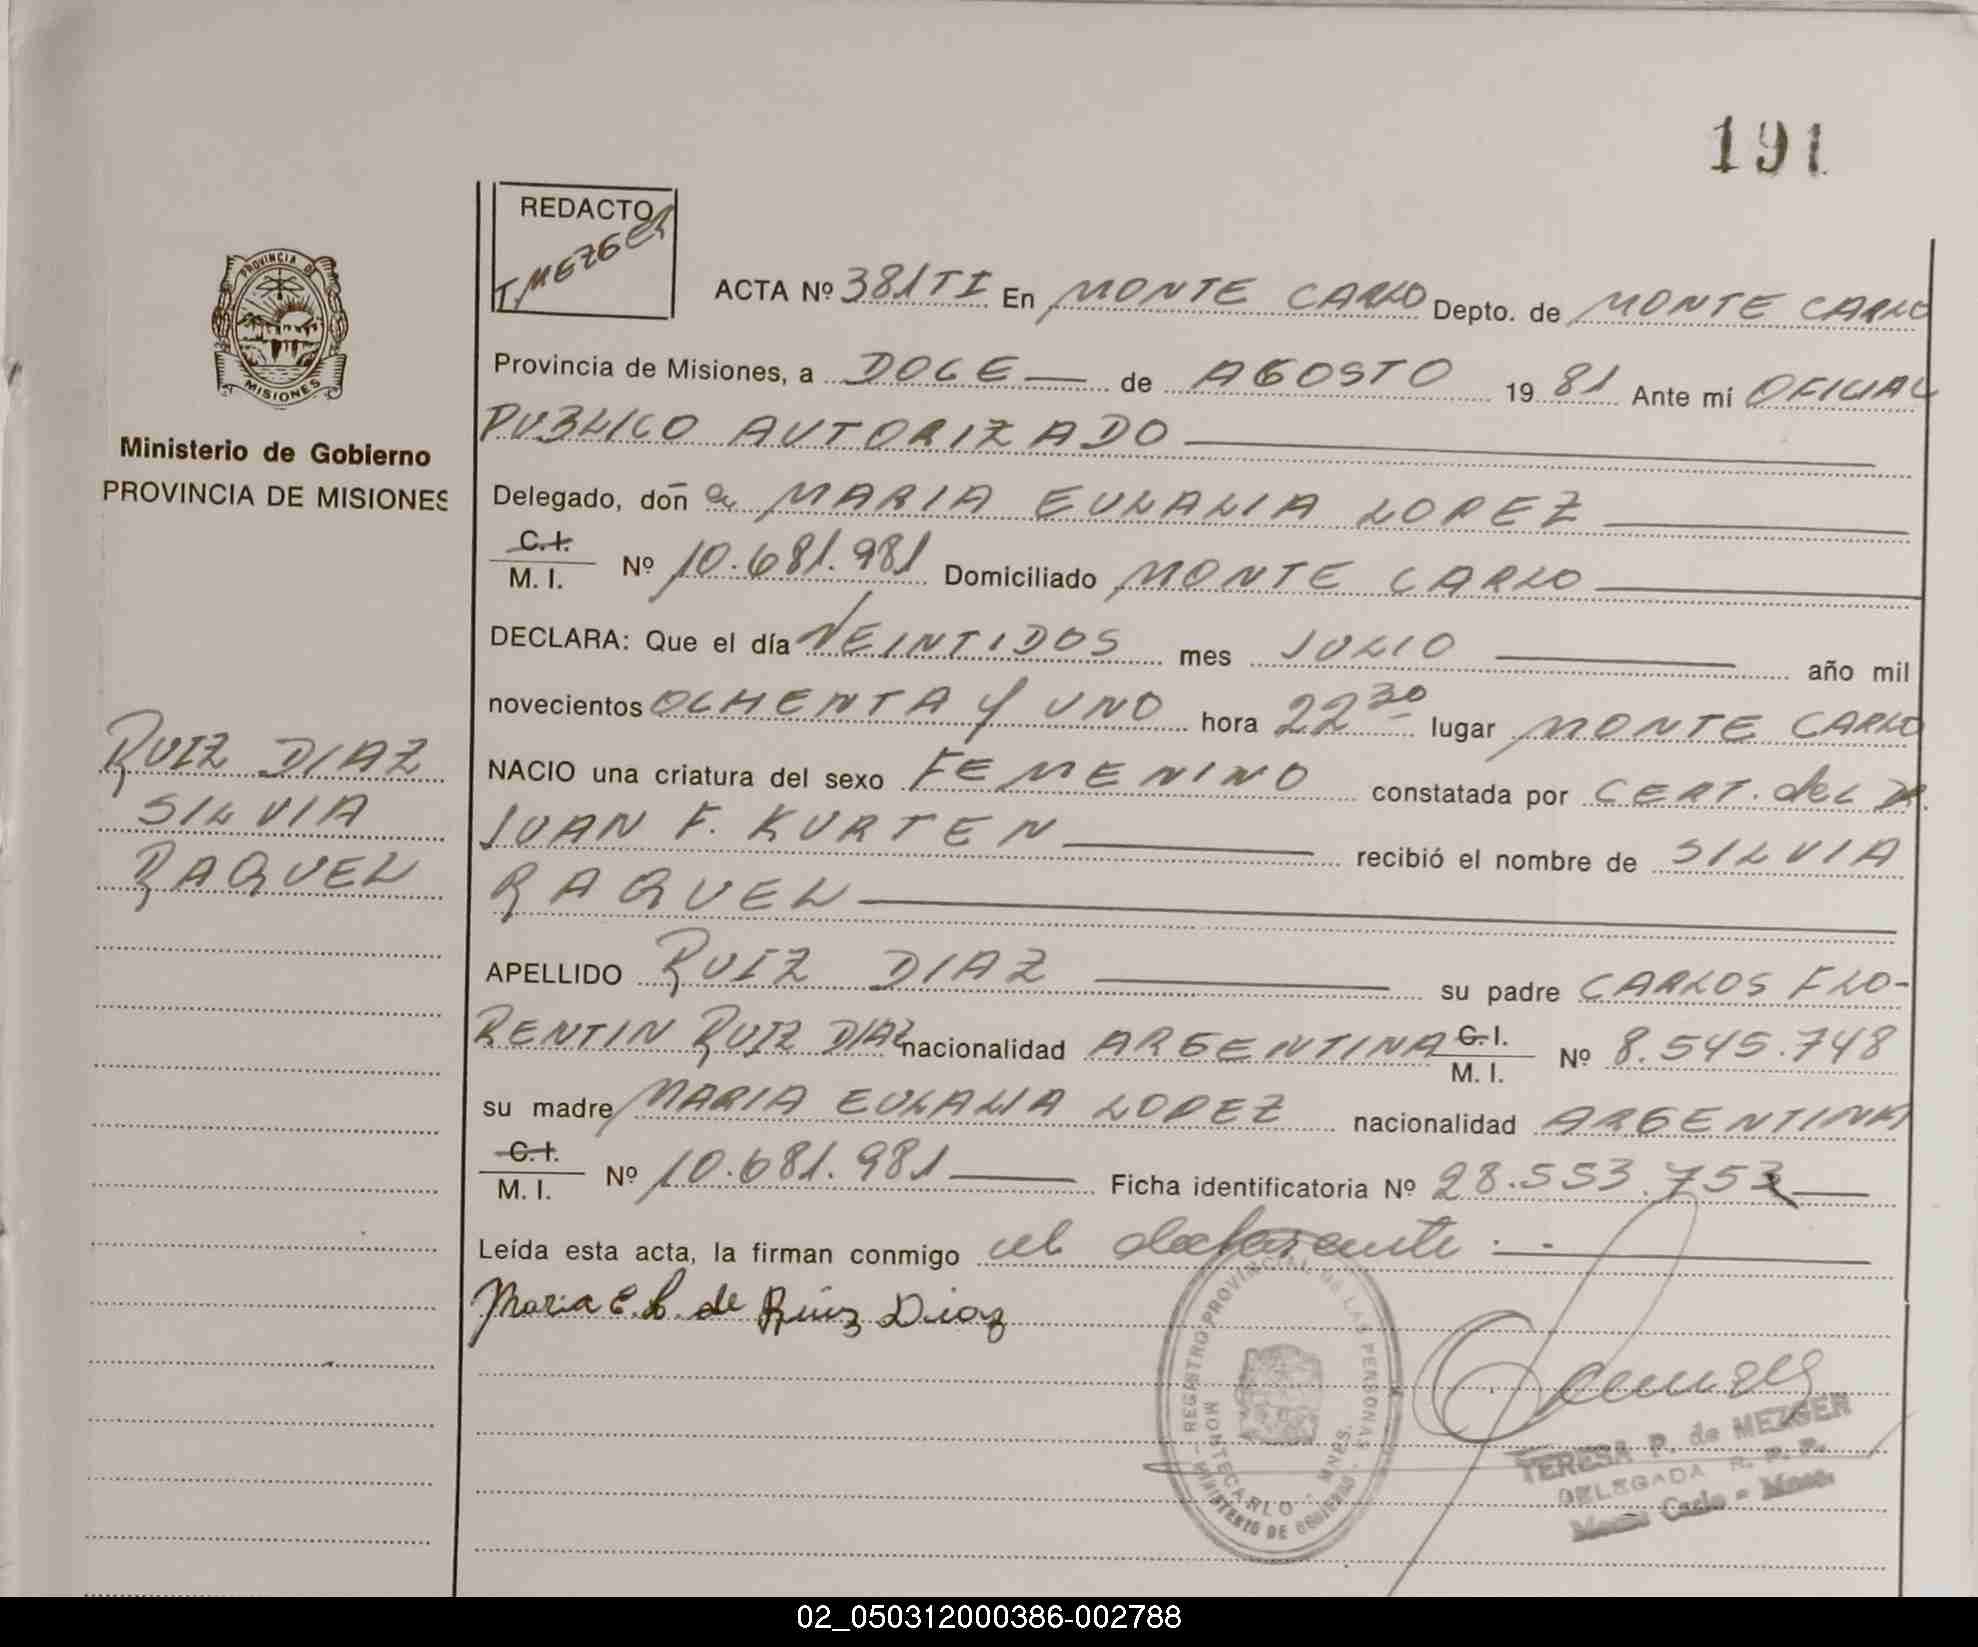 191
REDACTO
T. MEZGER
PROVINCIA DE
MISIONES
Ministerio de Gobierno
PROVINCIA DE MISIONES
RUIZ DIAZ
SILVIA
RAQUEL
ACTA Nº 381TI En MONTE CARLO Depto. de MONTE CARLO
Provincia de Misiones, a DOCE — de AGOSTO 19 81 Ante mí OFICIAL
PUBLICO AUTORIZADO —
Delegado, don a MARIA EULALIA LOPEZ —
C.I. / M. I. Nº 10.681.981 Domiciliado MONTE CARLO —
DECLARA: Que el día VEINTIDOS mes JULIO — año mil
novecientos OCHENTA Y UNO hora 22 30 lugar MONTE CARLO
NACIO una criatura del sexo FEMENINO constatada por CERT. del DR.
JUAN F. KURTEN — recibió el nombre de SILVIA
RAQUEL —
APELLIDO RUIZ DIAZ — su padre CARLOS FLO-
RENTIN RUIZ DIAZ nacionalidad ARGENTINA C.I. / M. I. Nº 8.545.748
su madre MARIA EULALIA LOPEZ nacionalidad ARGENTINA
C.I. / M. I. Nº 10.681.981 — Ficha identificatoria Nº 28.553.753 —
Leída esta acta, la firman conmigo el declarante . - —
Maria E. L. de Ruiz Diaz
REGISTRO PROVINCIAL DE LAS PERSONAS
MONTECARLO - MNES.
MINISTERIO DE GOBIERNO
TERESA P. de MEZGER
DELEGADA R. P. P.
Monte Carlo - Mnes.
02_050312000386-002788